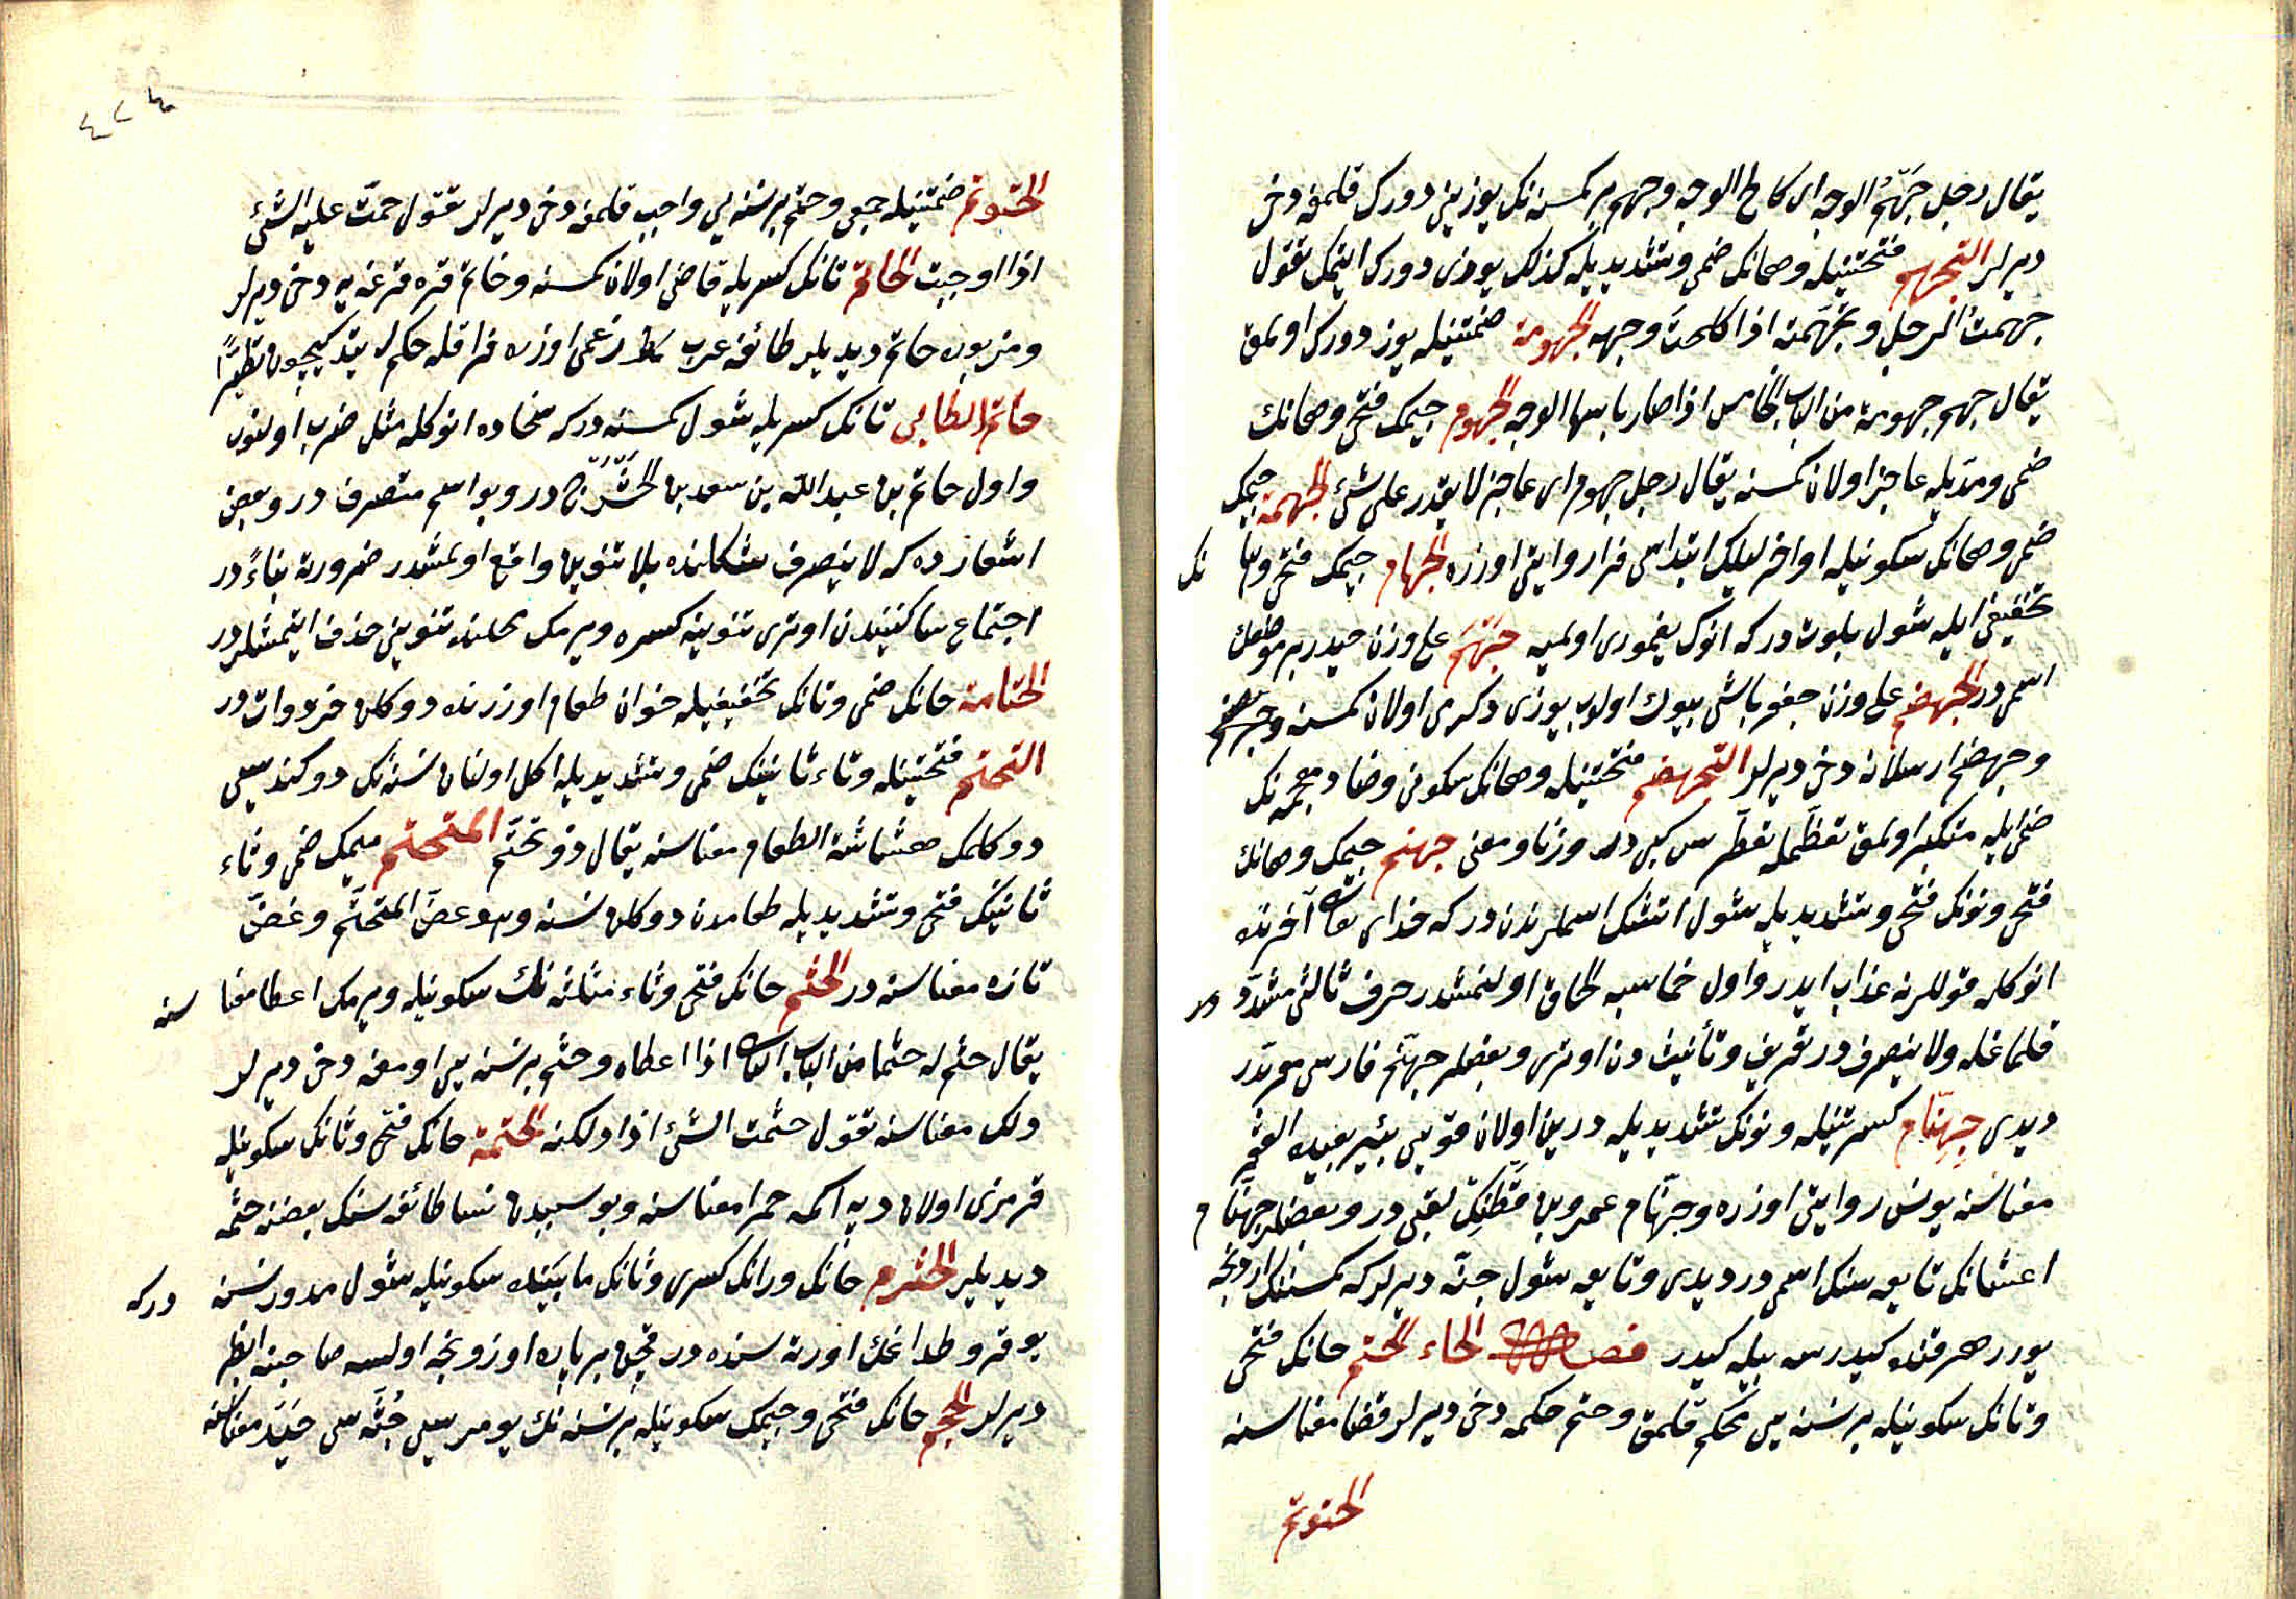 يقال رجل جَهْمُ الوجه اى كالح الوجه وجهم بر كمسنه نك يوزينى دورك قلمغه دخى
ديرلر التجهم فتحتينله وهانك ضمى وتشديديله كذلك يوزى دورك ايتمك تقول
جهمتُ الرجل وتجهّمته اذا كلحتَ وجهه الجهومة ضمتينله يوز دورك اولمق
يقال جهم جهومة من الباب الخامس اذا صار باسر الوجه الجهوم جيمك فتحى وهانك
ضمى ومدّيله عاجز اولان كمسنه يقال رجل جهوم اى عاجز لا يقدر على شئ الجهمة جيمك
ضمى وهانك سكونيله اواخر ليلك ابتداسى فرا روايتى اوزره الجهام جيمك فتحى وها نك
تخفيفى ايله شول بلوت دركه انوك يغمورى اولميه جَيْهَم على وزن حيدر بر موضعك
اسمى در الجهضم على وزن جعفر باشى بيوك اولوب يوزى دكرمى اولان كمسنه وجهضم
وجهضم ارسلانه دخى ديرلر التجهضم فتحتينله وهانك سكونى وضاد معجمه نك
ضمّ ايله متكبر اولمق تعظّمله تغطرس كبى در وزنا ومعنى جهنم جيمك وهانك
فتحى ونونك فتحى وتشديديله شول آتشك اسملرندن دركه خداى تعا آخرتده
انوكله قوللرينه عذاب ايدر واول خماسيه الحاق اولنمشدر حرف ثالثى مشدّد در
قلماغله ولا ينصرف در تعريف وتأنيث دن اوترى وبعضلر جهنّم فارسى معربدر
ديدى جِهِنّام كسرتينله ونونك تشديديله درين اولان قويى بئير بعيده القعر
معناسنه يونس روايتى اوزره وجهنّام عمرو بن قَطَنِك لقبى در وبعضلر جهنّام
اعشانك تابعه سنك اسمى در ديدى وتابعه شول جنّه ديرلركه كمسنه نك اردنجه
يورر هر قنده كيدرسه بيله كيدر فصل الحاء الحتم حانك فتحى
وتانك سكونيله بر نسنه يى محكم قلمق وحتم حكمه دخى ديرلر قضا معناسنه
الحتوم
٤٢٤
الحتوم ضمتينله جمعى وحتم بر نسنه يى واجب قلمغه دخى ديرلر تقول حتمت عليه الشئ
اذا اوجبت الحاتم تانك كسريله قاضى اولان كمسنه وحاتم قره قرغه يه دخى ديرلر
ومزبوره حاتم ديديلر طائفه عرب زعمى اوزره فراقله حكم ايتديكيچون تطيّرًا
حاتم الطائى تانك كسريله شول كمسنه دركه سخاده انوكله مثل ضرب اولنور
واول حاتم بن عبد الله بن سعد بن الحَشْرَج در وبو اسم متصرف در وبعض
اشعارده كه لا ينصرف شكلنده بلا تنوين واقع اولمشدر ضرورته بناءً در
اجتماع ساكنيندن اوترى تنوينه كسره ويرمك محلنده تنوينى حذف ايتمشلردر
الحتامة حانك ضمى وتانك تخفيفيله خوان طعام اوزرنده دوكلن خردوات در
التحتم فتحتينله وتاء ثانينك ضمى وتشديديله اكل اولنان نسنه نك دوكندیسى
دوكلمك هشاشة الطعام معناسنه يقال ذو تحتّم المتحتم ميمك ضمى وتاء
ثانينك فتحى وتشديديله طعامدن دوكلن نسنه وهو غضّ المتحتّم وغضّ
تازه معناسنه در الحثم حانك فتحى وثاء مثلثه نك سكونيله ويرمك اعطا معنا سنه
يقال حثم له حثما من الباب اذا اعطاه وحثم بر نسنه يى اومغه دخى ديرلر
دلك معناسنه تقول حثمت الشئ اذا دلكته الحثمة حانك فتحى وثانك سكونيله
قرمزى اولان دپه اكمه حمرا معناسنه وبو سببدن نسا طائفه سنك بعضنه حثمه
ديديلر الحثرم حانك ورانك كسرى وثانك مابينده سكونيله شول مدور نسنه دركه
يوقرو طداغك اورته سنده در قچن بر پاره اوزونجه اولسه صاحبنه ابظر
ديرلر الحجم حانك فتحى وجيمك سكونيله بر نسنه نك يومريسى جُثّه سى حيد معناسنه